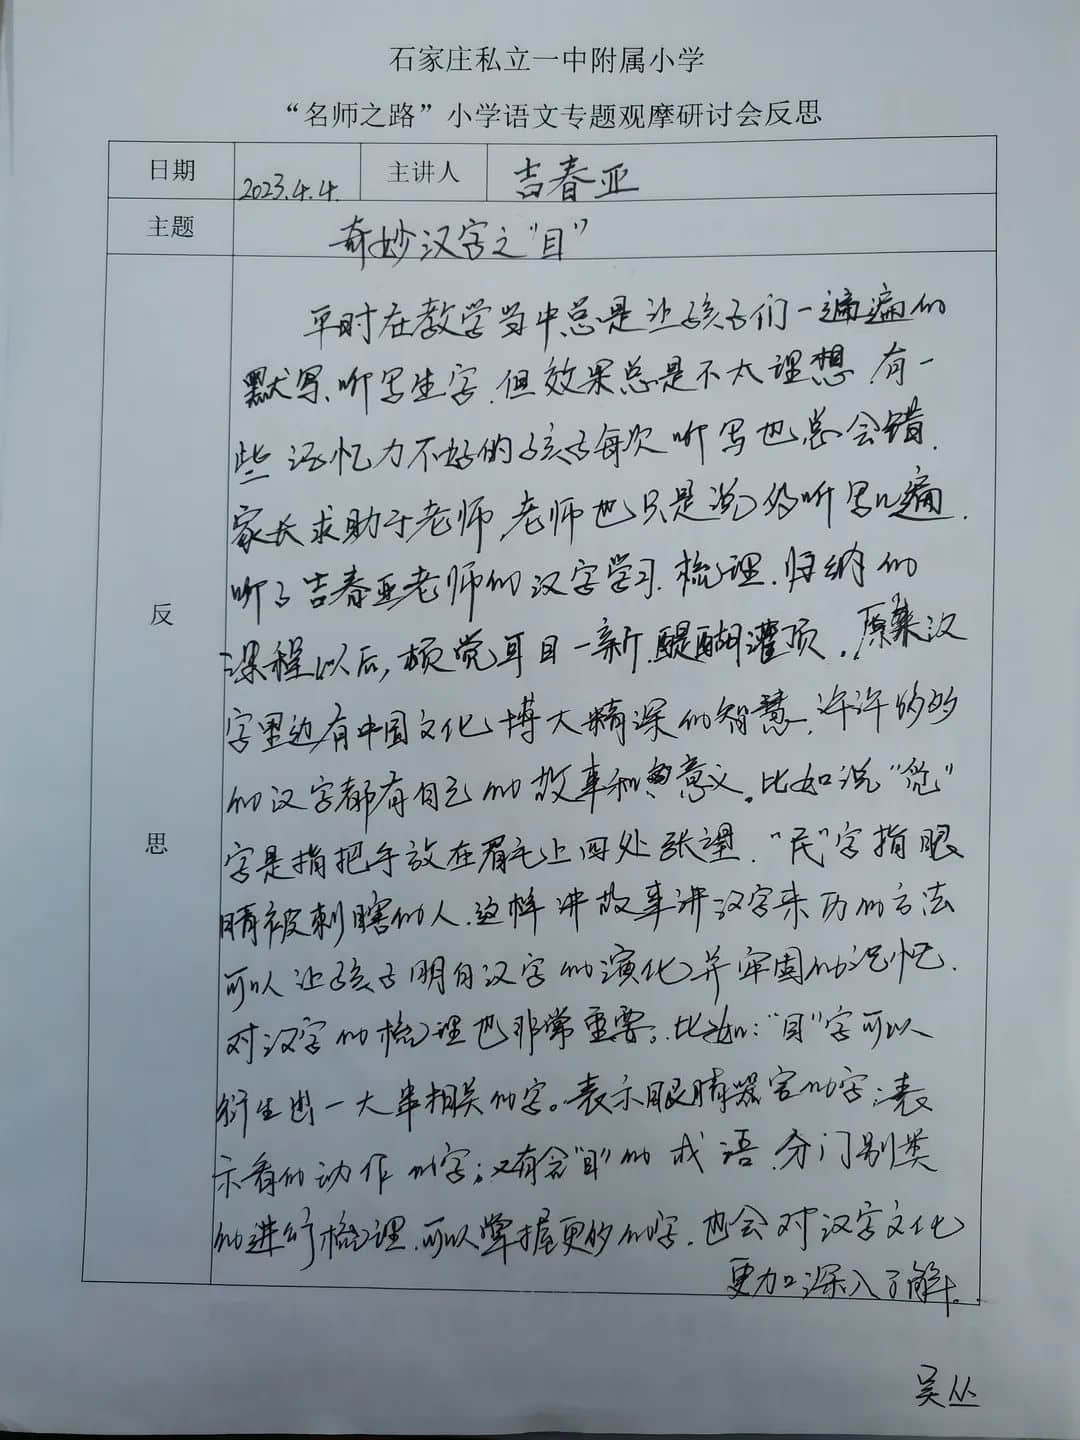 石家庄私立一中附属小学
“名师之路”小学语文专题观摩研讨会反思
日期 2023.4.4. 主讲人 吉春亚
主题 奇妙汉字之“目”
反思
平时在教学当中总是让孩子们一遍遍的
默写、听写生字.但效果总是不太理想.有一
些记忆力不好的孩子每次听写也总会错.
家长求助于老师,老师也只是说多听写几遍.
听了吉春亚老师的汉字学习.梳理.归纳的
课程以后,顿觉耳目一新.醍醐灌顶.原来汉
字里边有中国文化博大精深的智慧.许许多多的
的汉字都有自己的故事和意义。比如说“觅”
字是指把手放在眉毛上四处张望.“民”字指眼
睛被刺瞎的人.这样讲故事讲汉字来历的方法
可以让孩子明白汉字的演化并牢固的记忆.
对汉字的梳理也非常重要。比如:“目”字可以
衍生出一大串相关的字。表示眼睛器官的字;表
示看的动作的字;又有含“目”的成语.分门别类
的进行梳理.可以掌握更多的字.也会对汉字文化
更加深入了解.
吴丛